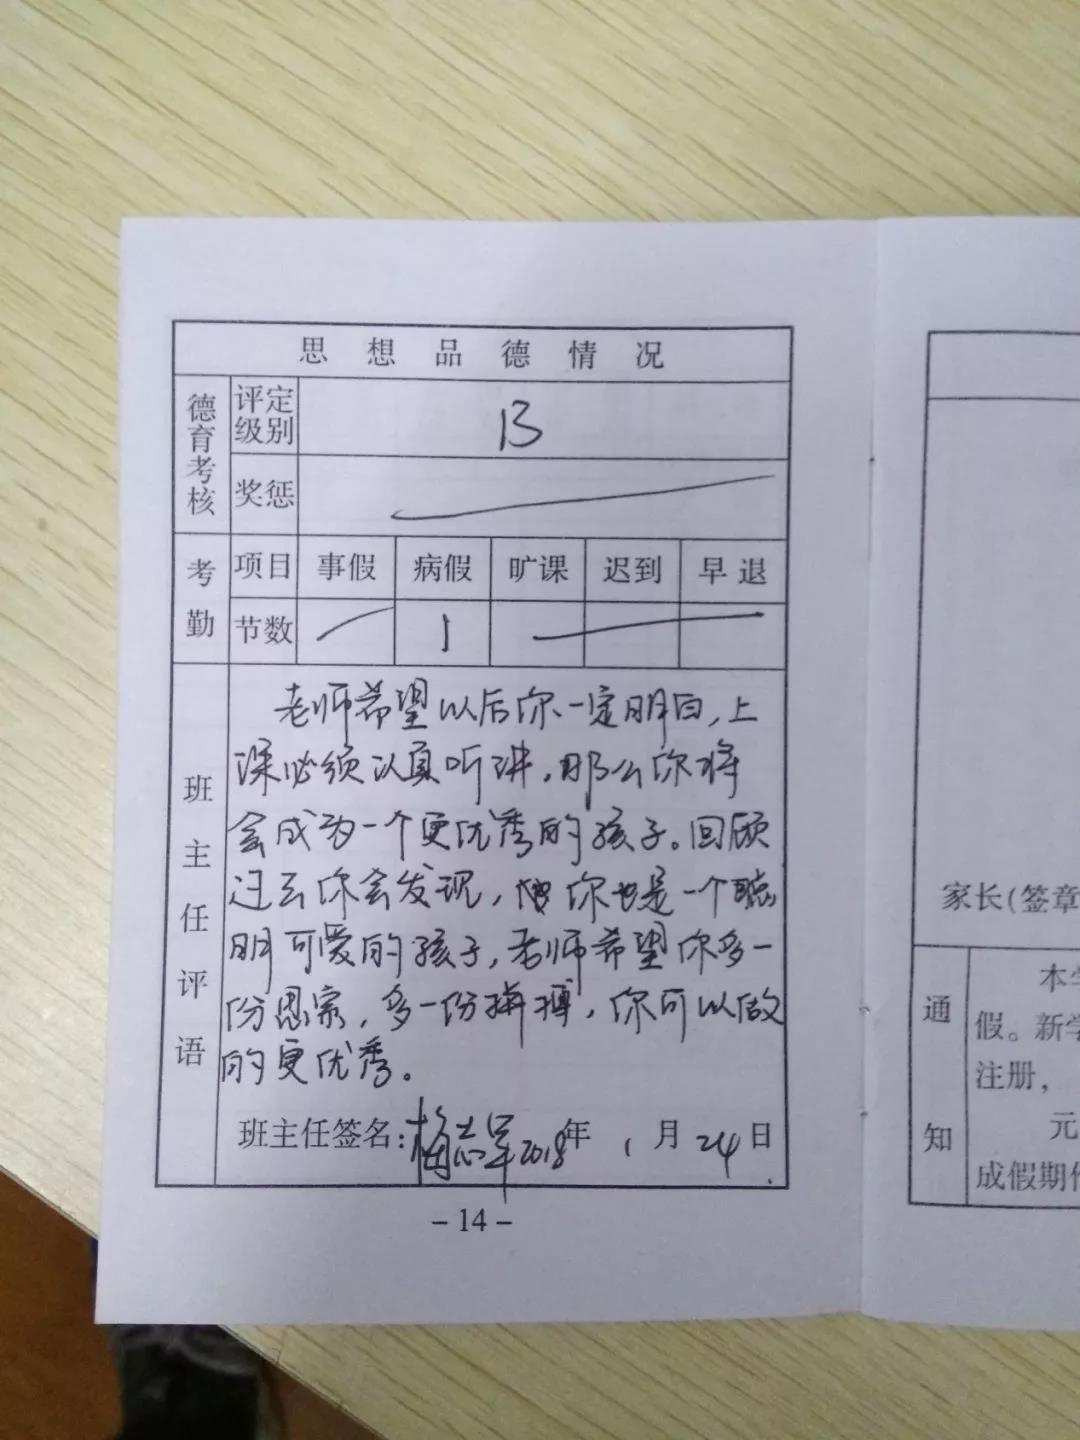 思想品德情况
德育考核
评定级别
B
奖惩
考勤
项目 事假 病假 旷课 迟到 早退
节数 1
班主任评语
老师希望以后你一定明白,上
课必须认真听讲,那么你将
会成为一个更优秀的孩子。回顾
过去你会发现,你也是一个聪
明可爱的孩子,老师希望你多一
份思索,多一份拼搏,你可以做
的更优秀。
班主任签名:梅志军 2018年 1 月 24 日
- 14 -
家长(签章
通知
本学
假。新学
注册,
元
成假期作